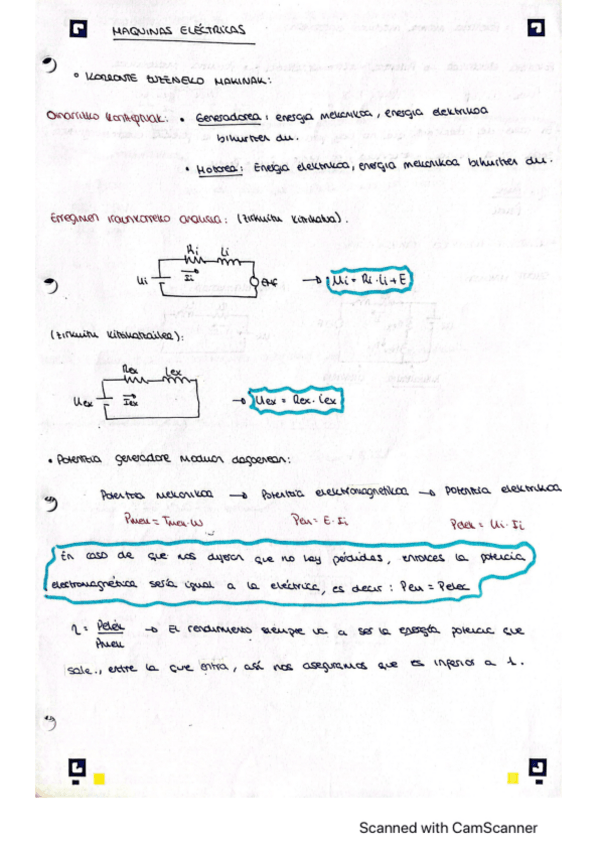 MAQUINAS ELÉCTRICAS
° KORRONTE ZUZENEKO MAKINAK:
Oinarrizko kontzeptuak: • Generadorea: energia mekanikoa, energia elektrikoa
bihurtzen du.
• Motorea: Energia elektrikoa, energia mekanikoa bihurtzen du.
Erregimen iraunkorreko analisia: (zirkuitu kitzikatua).
Ri Li
Ui Ii
→ Ui = Ri·Ii + E
(zirkuitu kitzikatzailea):
Rex Lex
Uex Iex
→ Uex = Rex·Iex
• Potentzia generadore moduan dagoenean:
Potentzia mekanikoa → Potentzia elektromagnetikoa → Potentzia elektrikoa
Pmek = Tmek·W Pem = E·Ii Pelek = Ui·Ii
En caso de que nos dijeran que no hay pérdidas, entonces la potencia
electromagnética sería igual a la eléctrica, es decir: Pem = Pelec
η = Pelek / Pmek → El rendimiento siempre va a ser la energía potencia que
sale., entre la que entra, así nos aseguramos que es inferior a 1.
Scanned with CamScanner